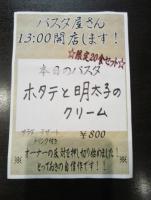 パスタ屋さん
13:00開店します!
☆限定20食セット☆
本日のパスタ
ホタテと明太子の
クリーム
サラダ デザート
ドリンク付き
¥800
オーナーの反対を押し切り始めました!
とっておきの自信作です!!